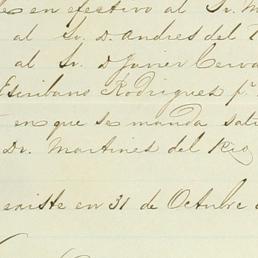 en efectivo al Sr. M
al Sr. D. Andres del
al Sr. D Javier Cerva
Escribano Rodrigues p.
en que se manda sati
Dr. Martines del Rio
existe en 31 de Octubre